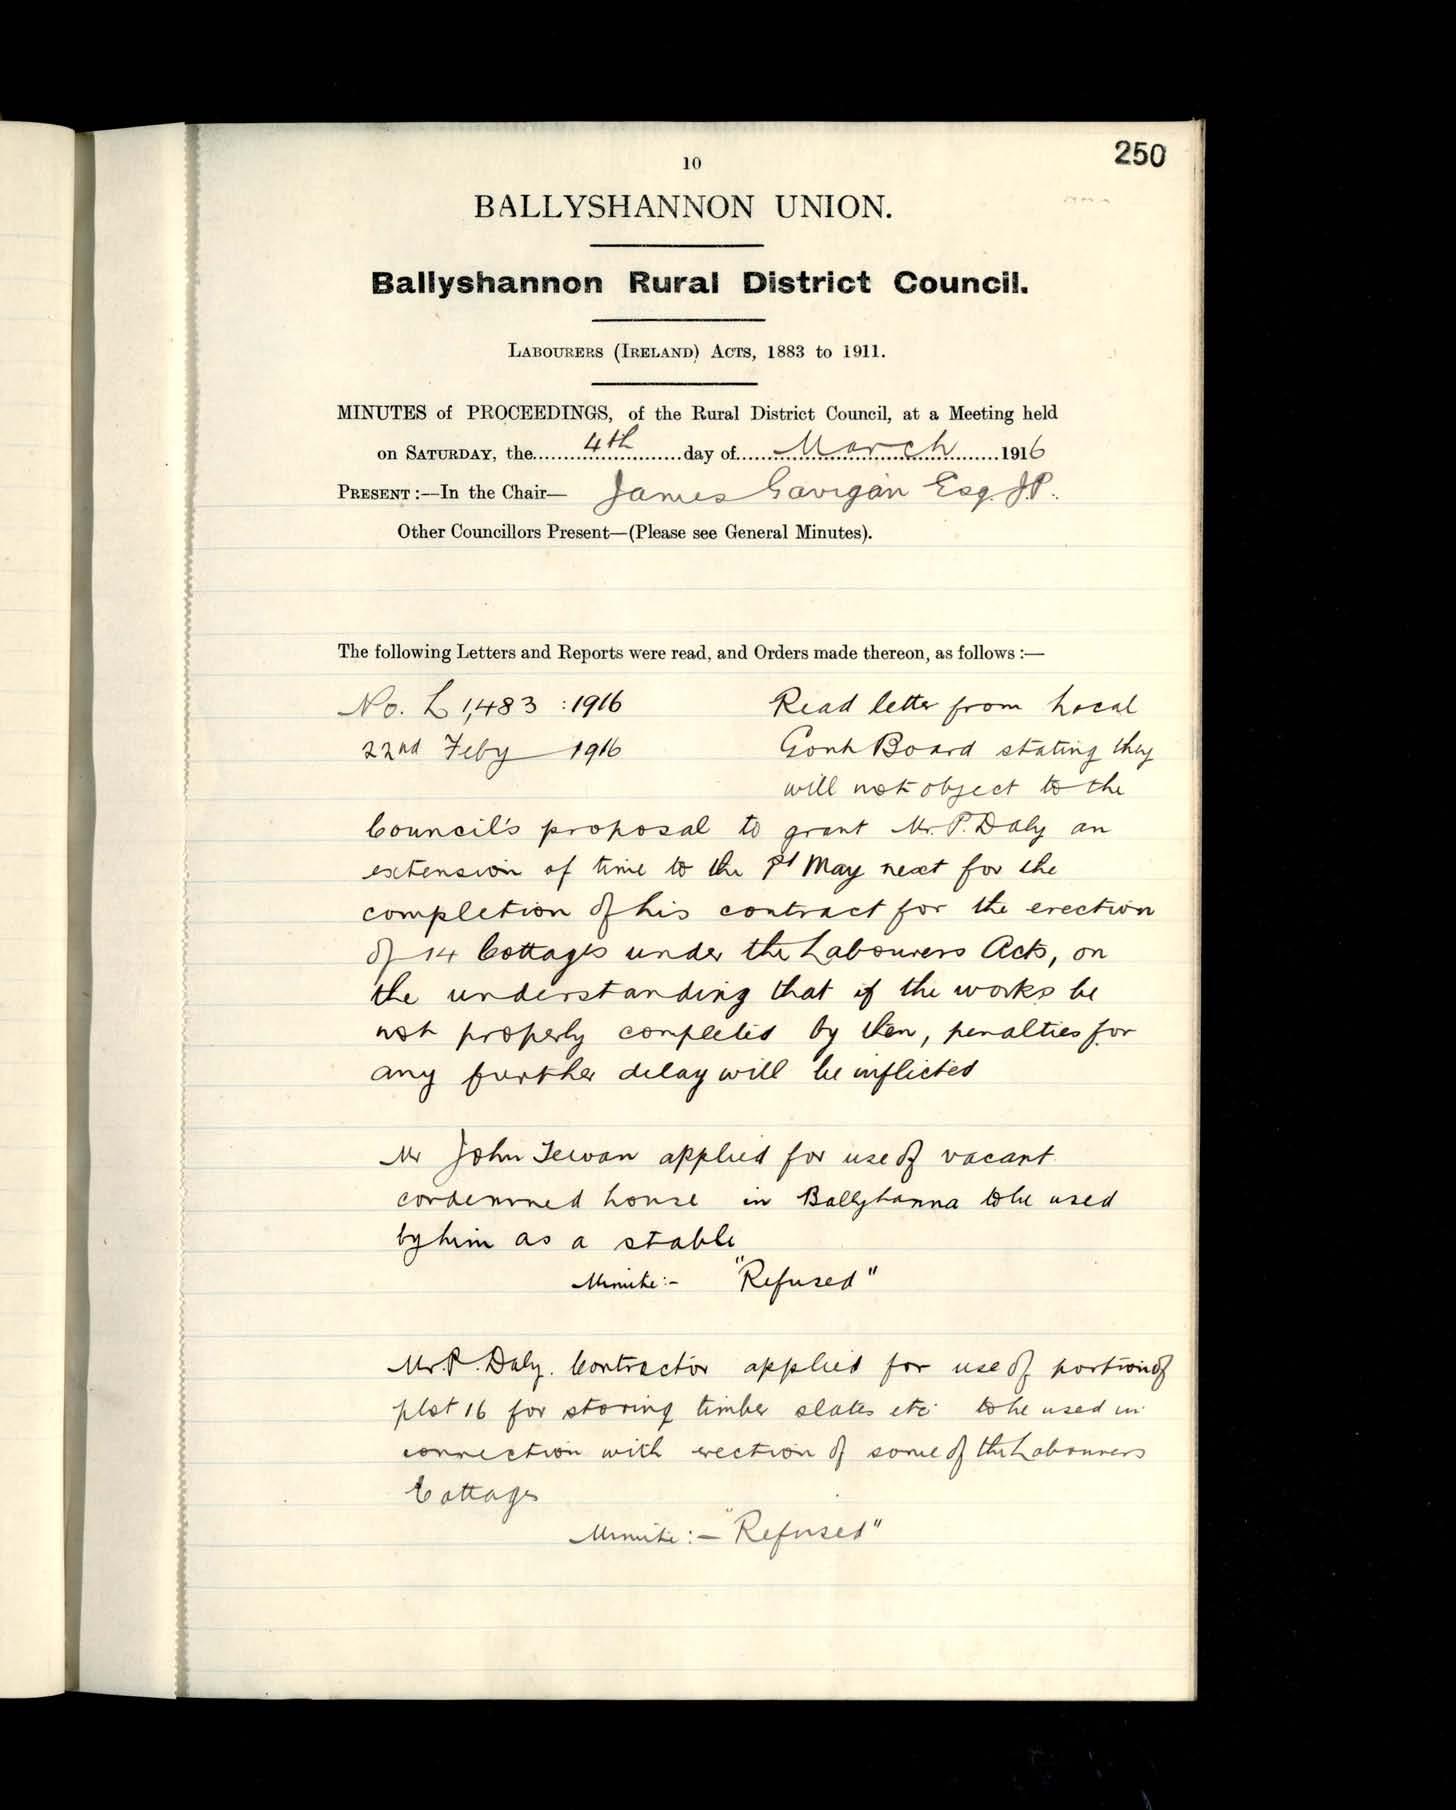 250
10
BALLYSHANNON UNION.
Ballyshannon Rural District Council.
LABOURERS (IRELAND) ACTS, 1883 to 1911.
MINUTES of PROCEEDINGS, of the Rural District Council, at a Meeting held
on SATURDAY, the 4th day of March 1916
PRESENT :—In the Chair— James Gavigan Esq. J.P.
Other Councillors Present—(Please see General Minutes).
The following Letters and Reports were read, and Orders made thereon, as follows :—
No. L 1,483 : 1916 Read letter from Local
22nd Feby 1916 Govt Board stating they
will not object to the
Council's proposal to grant Mr. P. Daly an
extension of time to the 1st May next for the
completion of his contract for the erection
of 14 Cottages under the Labourers Acts, on
the understanding that if the works be
not properly completed by then, penalties for
any further delay will be inflicted
Mr John applied for use of vacant
condemned house in Ballyhanna to be used
by him as a stable
Minute:- "Refused"
Mr. P. Daly. Contractor applied for use of portion of
plot 16 for storing timber slates etc to be used in
connection with erection of some of the Labourers
Cottages
Minute:- "Refused"